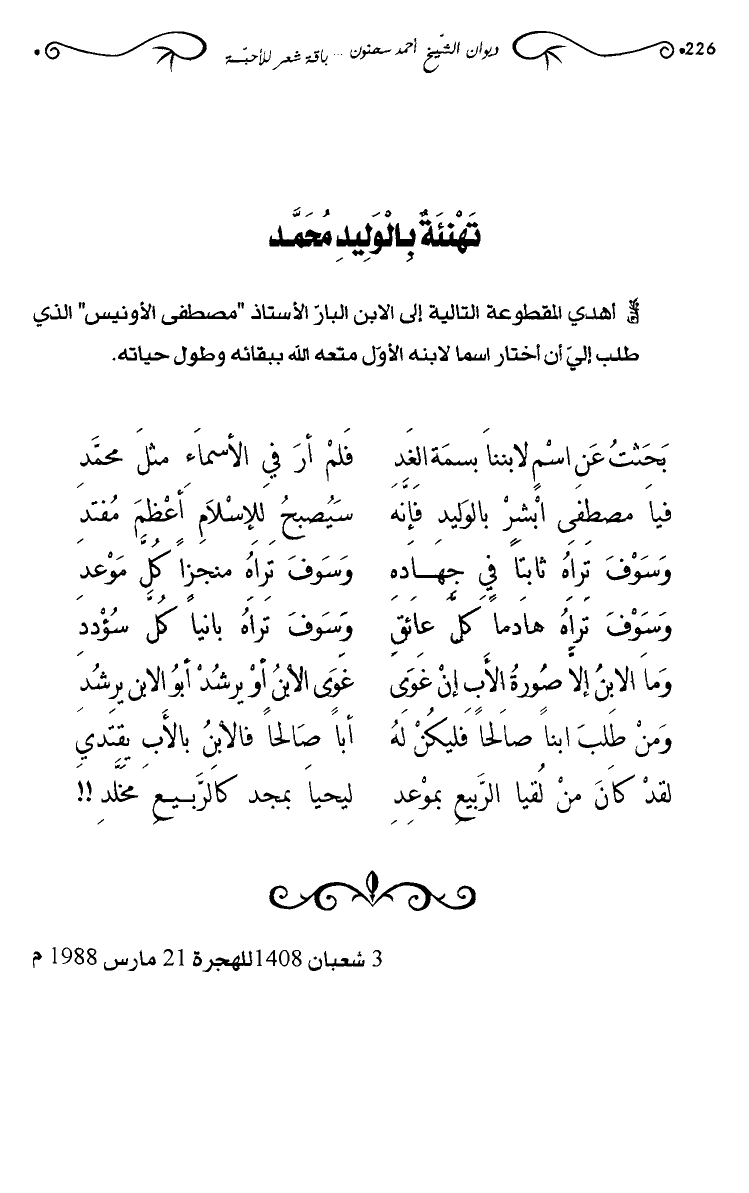 226 ديوان الشيخ أحمد سحنون ... باقة شعر للأحبّة
تَهْنئَةٌ بِالْوَلِيدِ مُحَمَّد
أهدي المقطوعة التالية إلى الابن البارّ الأستاذ "مصطفى الأونيس" الذي
طلب إليّ أن أختار اسما لابنه الأوّل متعه الله ببقائه وطول حياته.
بَحَثتُ عَن اسْمٍ لابننا بسمَة الغَدِ فَلمْ أرَ في الأسماءِ مثلَ محمَّدِ
فيا مصطفى ابْشرْ بالوَليد فإنَّه سَيُصبحُ للإسْلاَمِ أعْظمَ مُفتدِ
وَسَوْفَ تراهُ ثابتاً في جهاده وَسَوفَ تراهُ منجزاً كلَّ مَوْعد
وَسَوْفَ تراهُ هادماً كلَّ عائقٍ وَسَوفَ تراهُ بانياً كلَّ سؤْدد
وَما الابنُ إلاّ صُورةُ الأَب إنْ غوَى غوَى الابنُ أوْ يرشُدْ أبوُ الابن يرشُد
وَمنْ طلبَ ابناً صالحاً فليكنْ لهُ أباً صَالحاً فالابنُ بالأَب يقتَدي
لقدْ كانَ منْ لُقيا الرَّبيع بموْعِدِ ليحيا بمجد كالرَّبيعِ مخلدِ !!
3 شعبان 1408للهجرة 21 مارس 1988 م